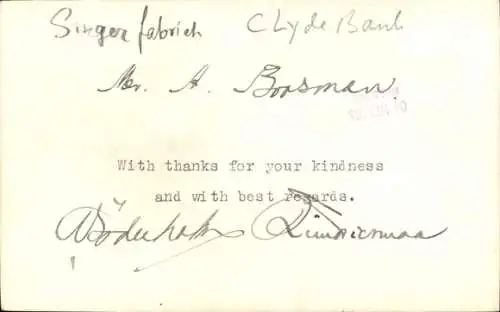 Singer fabrick Clyde Bank
Mr. A. Boosman.
With thanks for your kindness
and with best regards.
Zimmerman